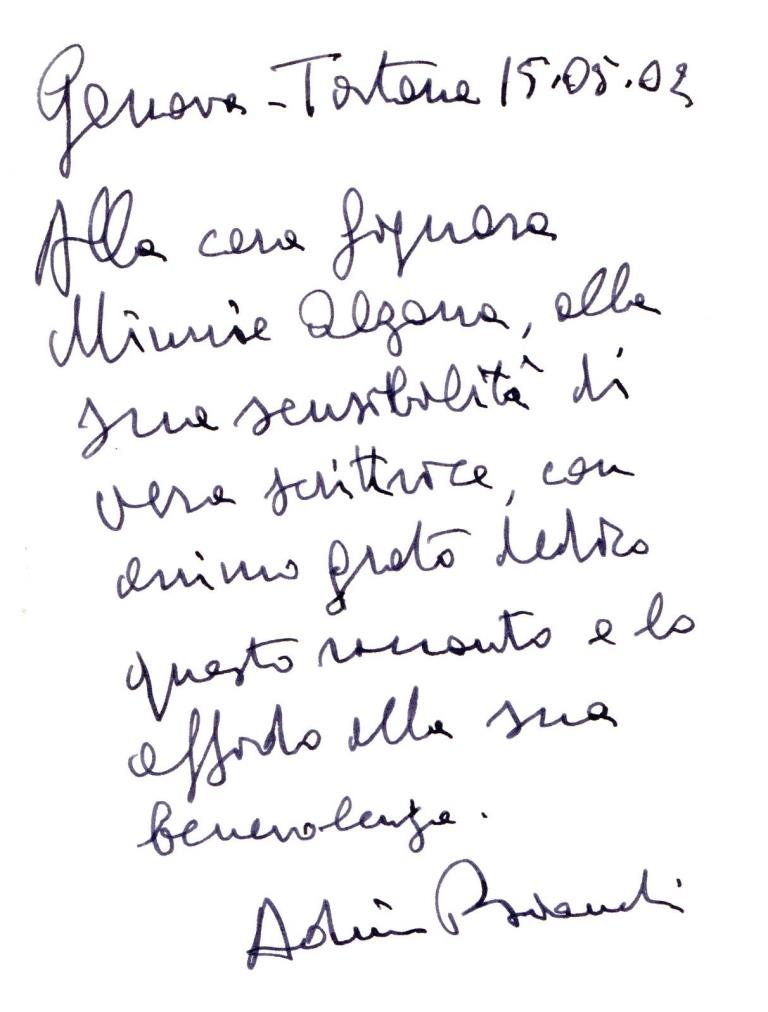 Genova - Tortona 15.05.02
Alla cara Signora
Minnie Alzona, alla
sua sensibilità di
vera scrittrice, con
animo grato dedico
questo racconto e lo
affido alla sua
benevolenza.